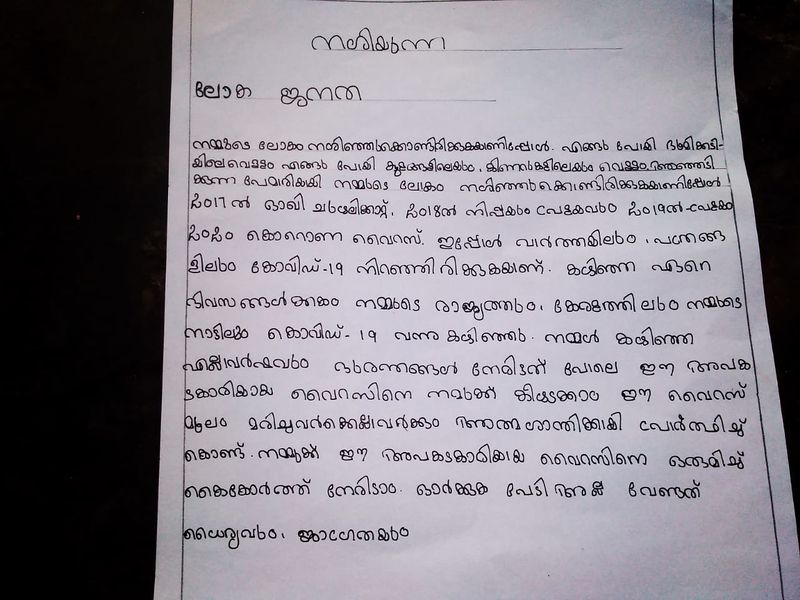 നശിയുന്ന
ലോക ജനത
നമ്മുടെ ലോകം നശിഞ്ഞുക്കൊണ്ടിരിക്കുകയാണിപ്പോൾ. എങ്ങു പോകി
യിലെ വെള്ളം എങ്ങു പോകി കുളങ്ങളിലെയും, കിണറുകളിലെയും വെള്ളം
ക്കുന്ന പേമാരിയാകി നമ്മുടെ ലോകം നശിഞ്ഞുക്കൊണ്ടിരിക്കുകയാണിപ്പോൾ
2017 ൽ ഓഖി ചുഴലിക്കാറ്റ്, 2018ൽ നിപ്പയും പ്രളയവും 2019ൽ-പ്രളയം
2020 കൊറോണ വൈറസ്. ഇപ്പോൾ വാർത്തയിലും, പത്രങ്ങ
ളിലും കോവിഡ്-19 നിറഞ്ഞിരിക്കുകയാണ്. കഴിഞ്ഞ ഏറെ
ദിവസങ്ങൾക്കകം നമ്മുടെ രാജ്യത്തും, കേരളത്തിലും നമ്മുടെ
നാട്ടിലും കൊവിഡ്- 19 വന്നു കഴിഞ്ഞു. നമ്മൾ കഴിഞ്ഞ
എല്ലാവർഷവും ദുരന്തങ്ങൾ നേരിടന്ന് പോലെ ഈ അപക
ടകാരിയായ വൈറസിനെ നമുക്ക് കീഴടക്കാം ഈ വൈറസ്
മൂലം മരിച്ചവർക്കെല്ലാവർക്കും ആത്മശാന്തിക്കായി പ്രാർത്ഥിച്ച്
കൊണ്ട്. നമ്മുക്ക് ഈ അപകടകാരിയായ വൈറസിനെ ഒരുമിച്ച്
കൈകോർത്ത് നേരിടാം. ഓർക്കുക പേടി അല്ല വേണ്ടത്
ധൈര്യവും, ജാഗ്രതയും